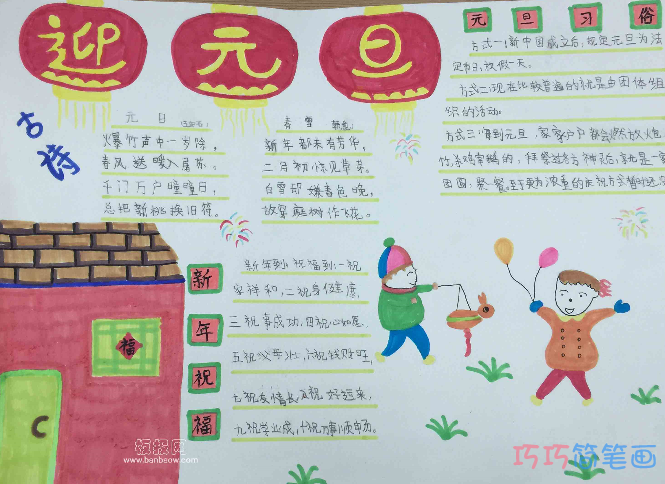 迎元旦
古诗
元日
爆竹声中一岁除，
春风送暖入屠苏。
千门万户曈曈日，
总把新桃换旧符。
春雪 韩愈
新年都未有芳华，
二月初惊见草芽。
白雪却嫌春色晚，
故穿庭树作飞花。
元旦习俗
方式一：新中国成立后，规定元旦为法
定节日，放假一天。
方式二：现在比较普遍的就是由团体组
织的活动。
方式三：每到元旦，家家户户都会燃放火炮
新年祝福
新年到，祝福到：一祝
家祥和，二祝身健康，
三祝事成功，四祝心如意，
五祝父母壮，六祝钱财旺，
七祝友情长，八祝好运来，
九祝学业成，十祝万事顺
福
板报网
www.banbaow.com
巧巧简笔画